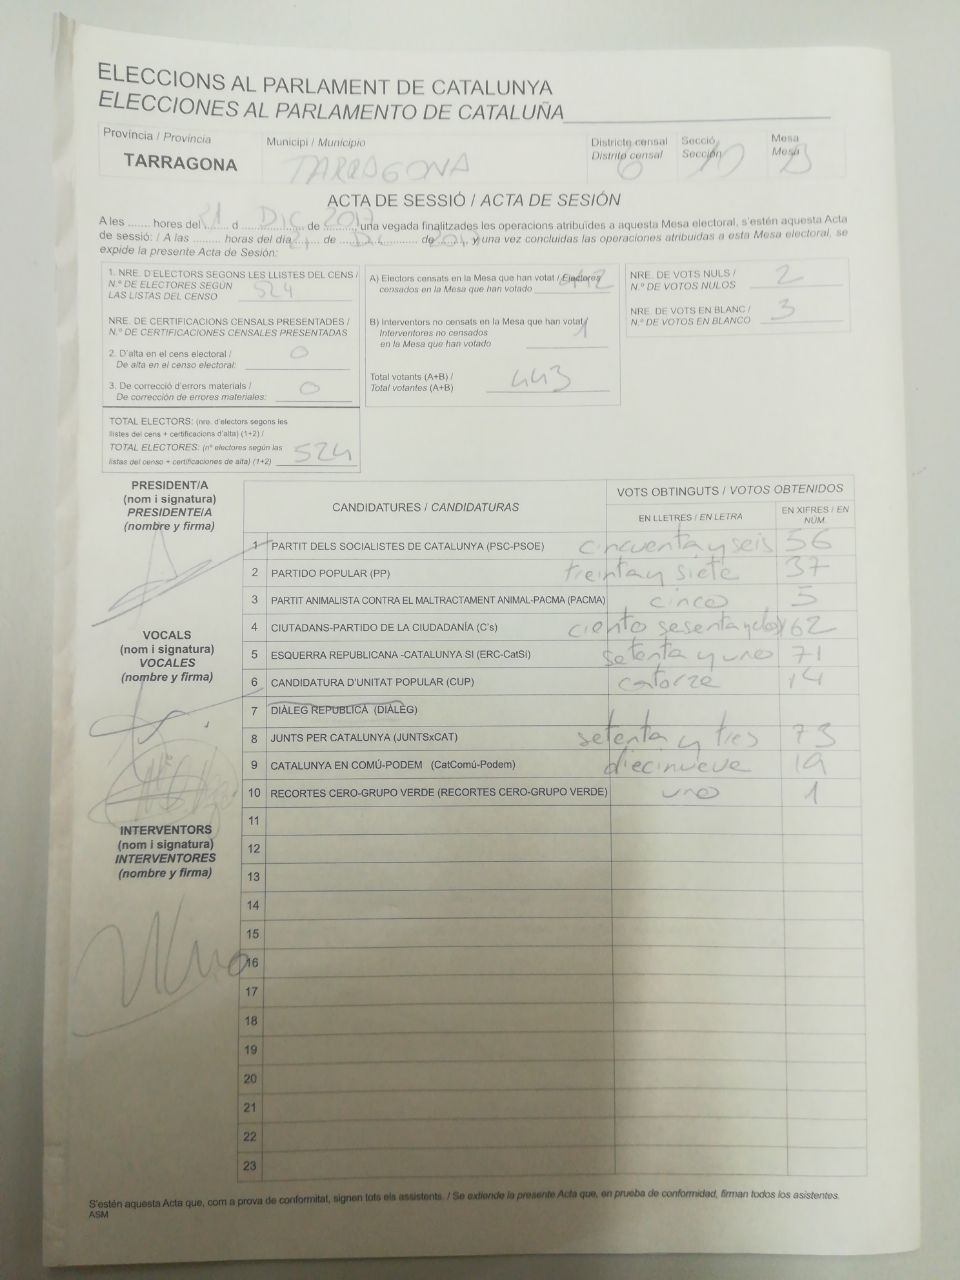 ELECCIONS AL PARLAMENT DE CATALUNYA
ELECCIONES AL PARLAMENTO DE CATALUÑA
Provincia / Provincia
TARRAGONA
Municipi / Municipio
TARRAGONA
Districte censal
Distrito censal
6
Secció
Sección
Mesa
Mesa
B
ACTA DE SESSIÓ / ACTA DE SESIÓN
A les ...... hores del 21 d DIC de 2017 una vegada finalitzades les operacions atribuïdes a aquesta Mesa electoral, s'estén aquesta Acta
de sessió: / A las ......... horas del día 21 de Dic de 2017, y una vez concluidas las operaciones atribuidas a esta Mesa electoral, se
expide la presente Acta de Sesión:
1. NRE. D'ELECTORS SEGONS LES LLISTES DEL CENS /
N.º DE ELECTORES SEGÚN
LAS LISTAS DEL CENSO
524
NRE. DE CERTIFICACIONS CENSALS PRESENTADES /
N.º DE CERTIFICACIONES CENSALES PRESENTADAS
2. D'alta en el cens electoral /
De alta en el censo electoral:
0
3. De correcció d'errors materials /
De corrección de errores materiales:
0
TOTAL ELECTORS: (nre. d'electors segons les
llistes del cens + certificacions d'alta) (1+2) /
TOTAL ELECTORES: (nº electores según las
listas del censo + certificaciones de alta) (1+2)
524
A) Electors censats en la Mesa que han votat / Electores
censados en la Mesa que han votado
442
B) Interventors no censats en la Mesa que han votat /
Interventores no censados
en la Mesa que han votado
1
Total votants (A+B) /
Total votantes (A+B)
443
NRE. DE VOTS NULS /
N.º DE VOTOS NULOS
2
NRE. DE VOTS EN BLANC /
N.º DE VOTOS EN BLANCO
3
PRESIDENT/A
(nom i signatura)
PRESIDENTE/A
(nombre y firma)
VOCALS
(nom i signatura)
VOCALES
(nombre y firma)
INTERVENTORS
(nom i signatura)
INTERVENTORES
(nombre y firma)
CANDIDATURES / CANDIDATURAS
VOTS OBTINGUTS / VOTOS OBTENIDOS
EN LLETRES / EN LETRA
EN XIFRES / EN
NÚM.
1 PARTIT DELS SOCIALISTES DE CATALUNYA (PSC-PSOE) cincuenta y seis 56
2 PARTIDO POPULAR (PP) treinta y siete 37
3 PARTIT ANIMALISTA CONTRA EL MALTRACTAMENT ANIMAL-PACMA (PACMA) cinco 5
4 CIUTADANS-PARTIDO DE LA CIUDADANÍA (C's) ciento sesenta y dos 162
5 ESQUERRA REPUBLICANA -CATALUNYA SI (ERC-CatSí) setenta y uno 71
6 CANDIDATURA D'UNITAT POPULAR (CUP) catorze 14
7 DIÀLEG REPUBLICÀ (DIÀLEG)
8 JUNTS PER CATALUNYA (JUNTSxCAT) setenta y tres 73
9 CATALUNYA EN COMÚ-PODEM (CatComú-Podem) diecinueve 19
10 RECORTES CERO-GRUPO VERDE (RECORTES CERO-GRUPO VERDE) uno 1
11
12
13
14
15
16
17
18
19
20
21
22
23
S'estén aquesta Acta que, com a prova de conformitat, signen tots els assistents. / Se extiende la presente Acta que, en prueba de conformidad, firman todos los asistentes.
ASM